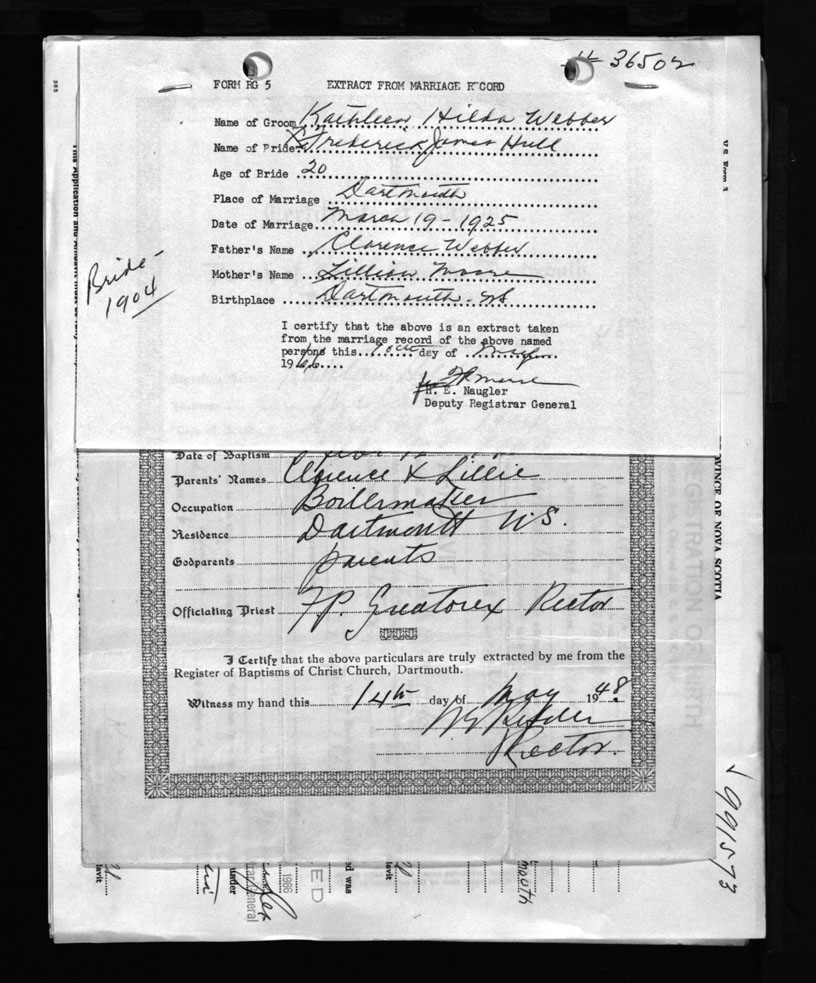 # 36502
FORM RG 5 EXTRACT FROM MARRIAGE RECORD
Name of Groom Kathleen Hilda Webber
Name of Bride Frederick James Hull
Age of Bride 20
Place of Marriage Dartmouth
Date of Marriage March 19 - 1925
Father's Name Clarence Webber
Mother's Name Lillian Moore
Birthplace Dartmouth - NS
Bride -
1904
I certify that the above is an extract taken
from the marriage record of the above named
persons this day of
1966
H. E. Naugler
Deputy Registrar General
Date of Baptism
Parents' Names Clarence & Lillie
Occupation Boilermaker
Residence Dartmouth N.S.
Godparents parents
Officiating Priest F.P. Greatorex Rector
I Certify that the above particulars are truly extracted by me from the
Register of Baptisms of Christ Church, Dartmouth.
Witness my hand this 14th day of May 1948
Rector.
U.S. Form 3
PROVINCE OF NOVA SCOTIA
991573
1966
under
mouth